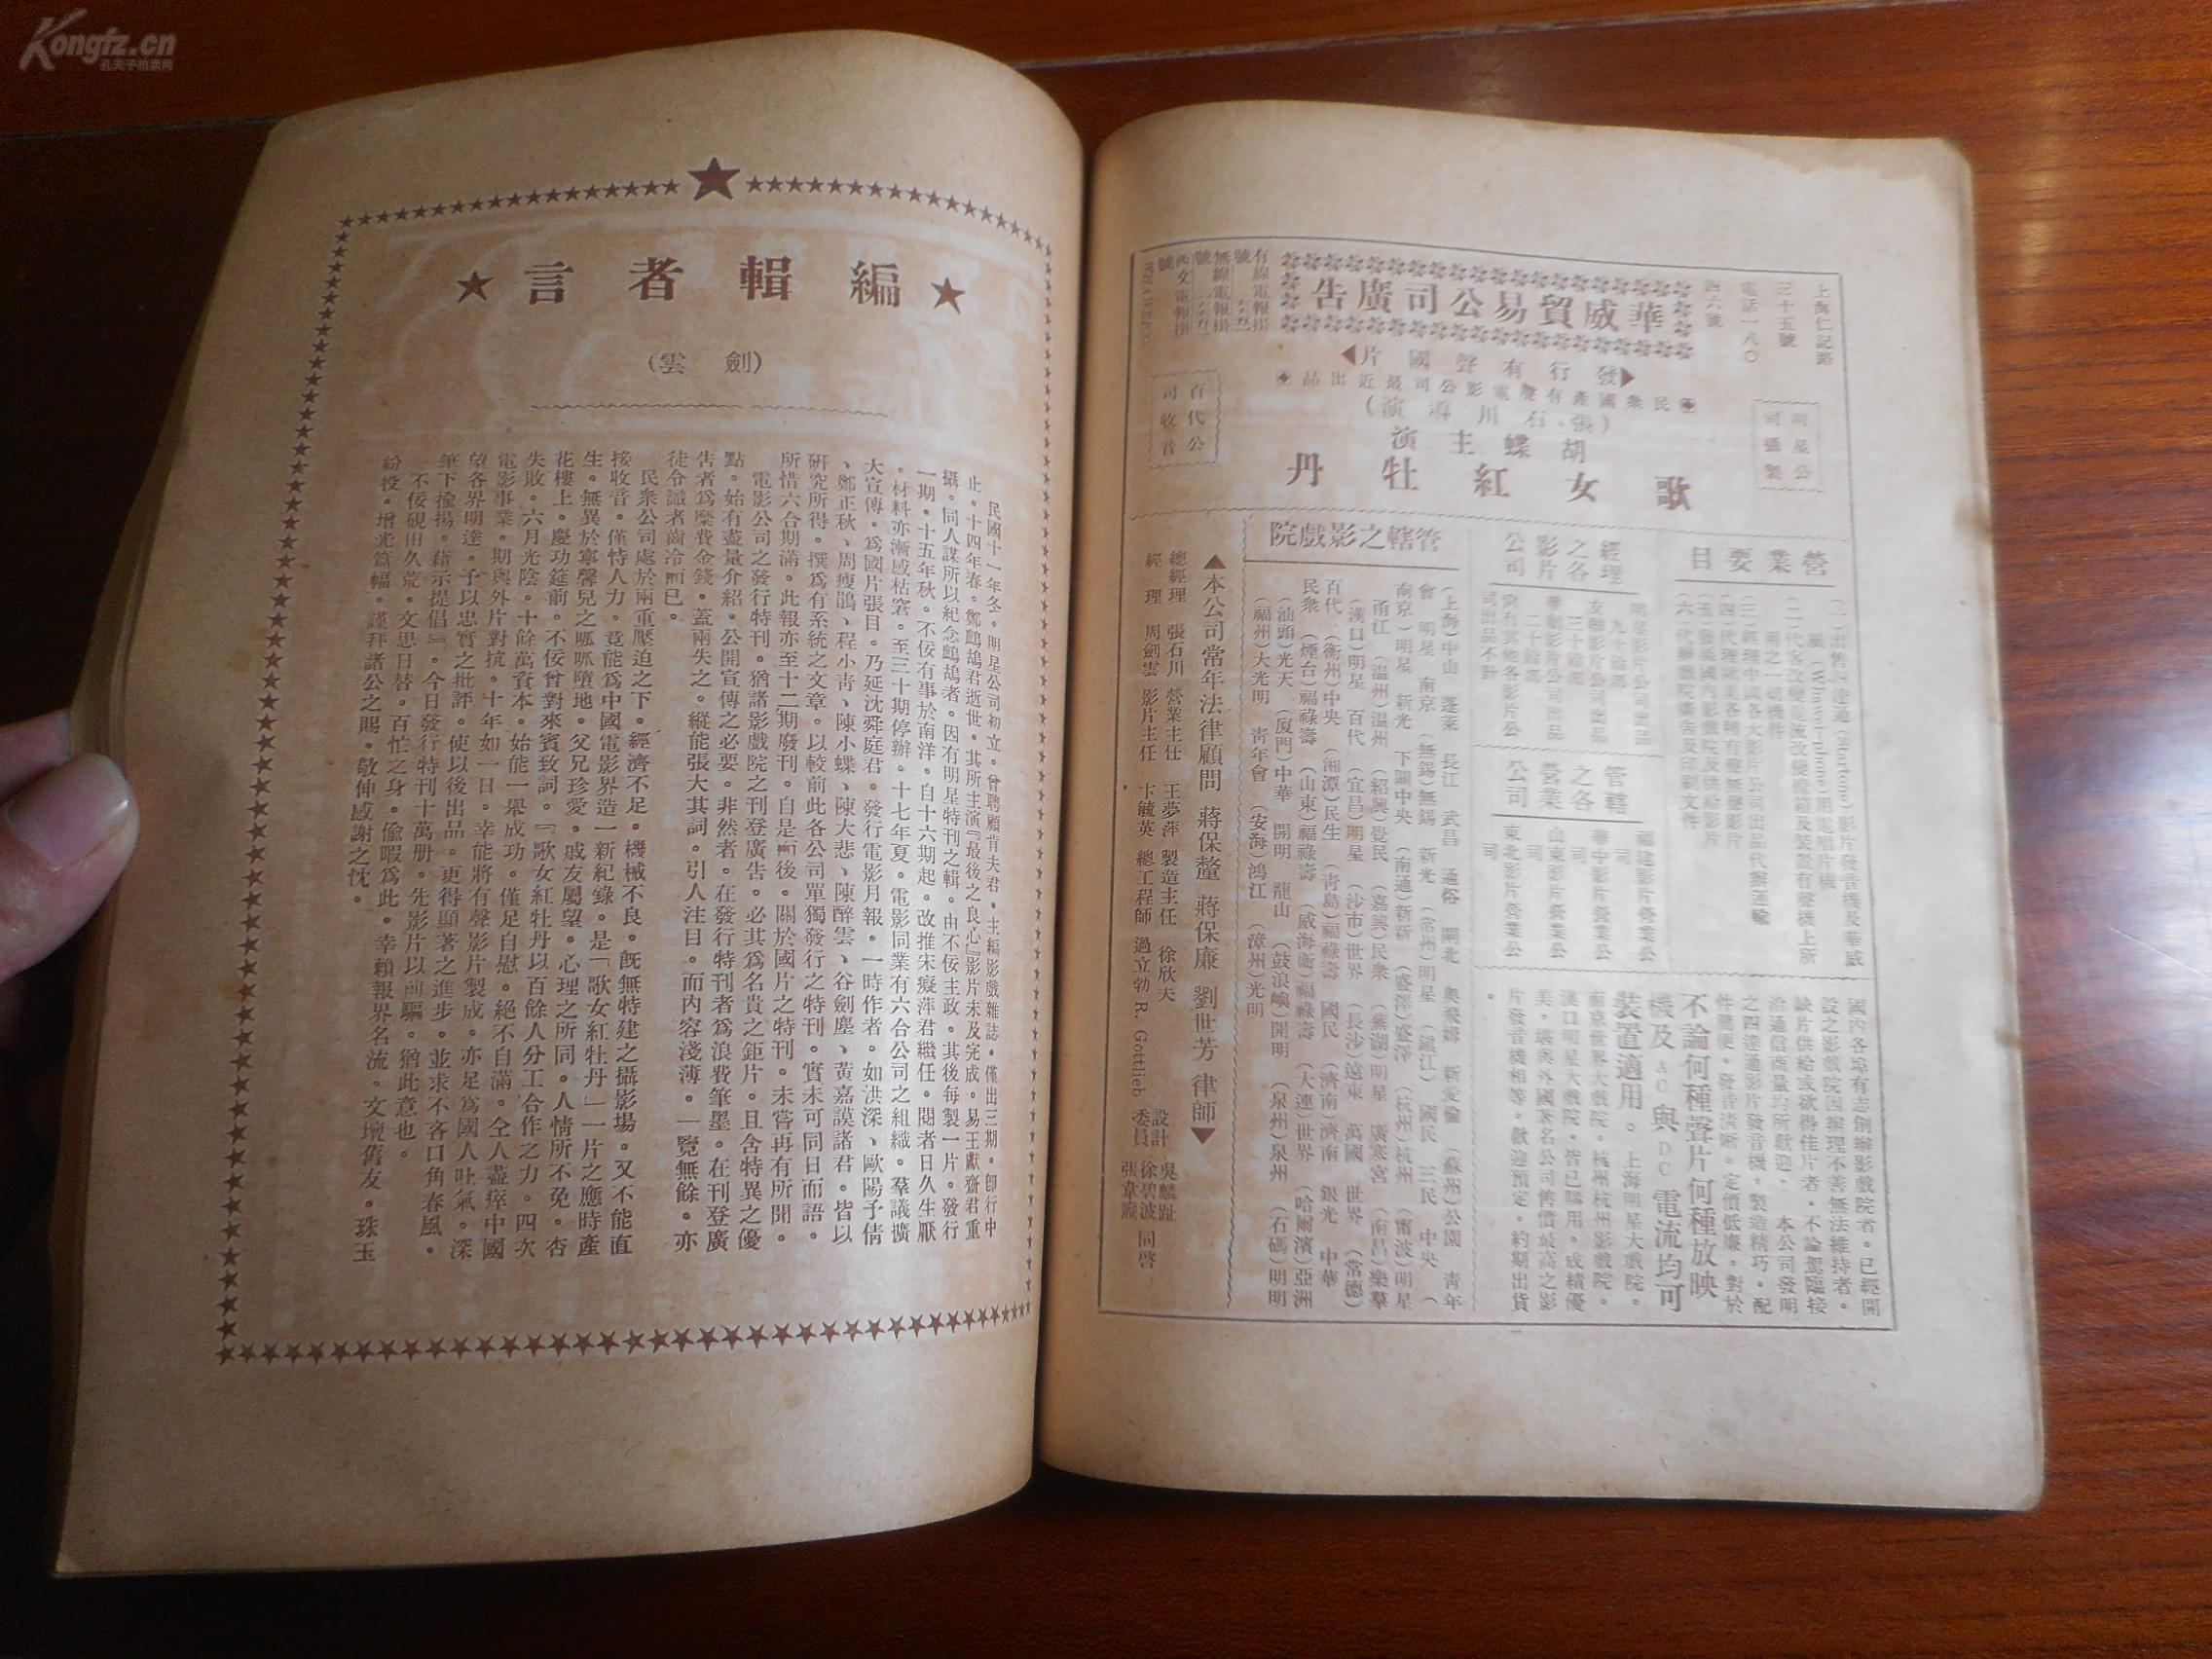 Kongfz.cn
孔夫子拍卖网
編輯者言
(劍雲)
民國十一年冬。明星公司初立。曾聘顧肯夫君。主編影戲雜誌。僅出三期。卽行中
止。十四年春。鄭鷓鴣君逝世。其所主演『最後之良心』影片未及完成。易王獻齋君重
攝。同人謀所以紀念鷓鴣者。因有明星特刊之輯。由不佞主政。其後每製一片。發行
一期。十五年秋。不佞有事於南洋。自十六期起。改推宋癡萍君繼任。閱者日久生厭
。材料亦漸感枯窘。至三十期停辦。十七年夏。電影同業有六合公司之組織。羣議擴
大宣傳。爲國片張目。乃延沈舜庭君。發行電影月報。一時作者。如洪深、歐陽予倩
、鄭正秋、周瘦鵑、程小靑、陳小蝶、陳大悲、陳醉雲、谷劍塵、黃嘉謨諸君。皆以
研究所得。撰爲有系統之文章。以較前此各公司單獨發行之特刊。實未可同日而語。
所惜六合期滿。此報亦至十二期廢刊。自是而後。關於國片之特刊。未嘗再有所聞。
電影公司之發行特刊。猶諸影戲院之刊登廣告。必其爲名貴之鉅片。且含特異之優
點。始有盡量介紹。公開宣傳之必要。非然者。在發行特刊者爲浪費筆墨。在刊登廣
告者爲糜費金錢。蓋兩失之。縱能張大其詞。引人注目。而內容淺薄。一覽無餘。亦
徒令識者齒冷而已。
民衆公司處於兩重壓迫之下。經濟不足。機械不良。旣無特建之攝影場。又不能直
接收音。僅恃人力。竟能爲中國電影界造一新紀錄。是「歌女紅牡丹」一片之應時產
生。無異於寧馨兒之呱呱墮地。父兄珍愛。戚友屬望。心理之所同。人情所不免。杏
花樓上。慶功筵前。不佞曾對來賓致詞。『歌女紅牡丹以百餘人分工合作之力。四次
失敗。六月光陰。十餘萬資本。始能一舉成功。僅足自慰。絕不自滿。仝人盡瘁中國
電影事業。期與外片對抗。十年如一日。幸能將有聲影片製成。亦足爲國人吐氣。深
望各界明達。予以忠實之批評。使以後出品。更得顯著之進步。並求不吝口角春風。
筆下揄揚。藉示提倡』。今日發行特刊十萬册。先影片以前驅。猶此意也。
不佞硯田久荒。文思日替。百忙之身。偸暇爲此。幸賴報界名流、文壇舊友。珠玉
紛投。增光篇幅。謹拜諸公之賜。敬伸感謝之忱。
上海仁記路
三十五號
電話一八〇
四六號
華威貿易公司廣告
有線電報掛
號
無線電報掛
號
西文電報掛
號
發行有聲國片
民衆國產有聲電影公司最近出品
(張石川導演)
胡蝶主演
歌女紅牡丹
明星公
司攝製
百代公
司收音
營業要目
(一)出售四達通(Startone)影片發音機及華威
風(Whawei-phone)用電唱片機
(二)代客改變電流改變燈箱及裝置有聲機上所
需之一切機件
(三)經理中國各大影片公司出品代辦運輸
(四)代理歐美各種有聲無聲影片
(五)發展國內影戲院及供給影片
(六)代辦戲院廣告及印刷文件
經理之各影片公司
明星影片公司出品
九十餘部
友聯影片公司出品
三十餘部
華劇影片公司出品
二十餘部
尙有其他各影片公
司出品不計
管轄之各營業公司
福建影片營業公
司
華中影片營業公
司
山東影片營業公
司
東北影片營業公
司
國內各埠有志創辦影戲院者。已經開
設之影戲院因辦理不善無法維持者。
缺片供給或欲得佳片者。不論駕臨接
洽通信商量均所歡迎。 本公司發明
之四達通影片發音機。製造精巧。配
件簡便。發音淸晰。定價低廉。對於
不論何種聲片何種放映
機及 AC 與 DC 電流均可
裝置適用。上海明星大戲院。
南京世界大戲院。杭州杭州影戲院。
漢口明星大戲院。皆已購用。成績優
美。堪與外國著名公司售價最高之影
片發音機相等。歡迎預定。約期出貨
。
管轄之影戲院
(上海)中山 蓬萊 長江 武昌 通俗 閘北 奧飛姆 新愛倫 (蘇州)公園 靑年
會 明星 南京 (無錫)無錫 新光 (常州)明星 (鎭江) 國民 三民 中央 (
南京)明星 新光 下關中央 (南通)新新 (盛澤)盛澤 (杭州)杭州 (甯波)明星
甬江 (温州)温州 (紹興)覺民 (嘉興)民衆 (蕪湖)明星 廣寒宮 (南昌)樂羣
(漢口)明星 百代 (宜昌)明星 (沙市)世界 (長沙)遠東 萬國 世界 (常德)
百代 (衡州)中央 (湘潭)民生 (靑島)福祿壽 國民 (濟南)濟南 銀光 中華
民衆 (煙台)福祿壽 (山東)福祿壽 (威海衛)福祿壽 (大連)世界 (哈爾濱)亞洲
(汕頭)光天 (厦門)中華 開明 龍山 (鼓浪嶼)開明 (泉州)泉州 (石碼)明明
(福州)大光明 靑年會 (安海)鴻江 (漳州)光明
本公司常年法律顧問 蔣保釐 蔣保廉 劉世芳 律師
總經理 張石川 營業主任 王夢萍 製造主任 徐欣夫 設計 吳麟趾
經理 周劍雲 影片主任 卞毓英 總工程師 過立勃 R. Gottlieb 委員 徐碧波 張韋濤 同啓